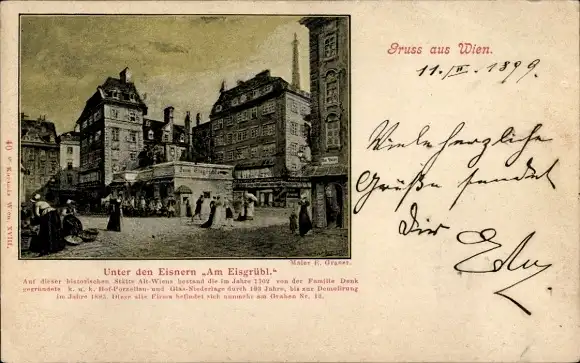 Gruss aus Wien.
11./II. 1899.
Viele herzliche
Grüße sendet
Dir
Unter den Eisnern „Am Eisgrübl.“
Maler E. Graner.
Auf dieser historischen Stätte Alt-Wiens bestand die im Jahre 1702 von der Familie Denk
gegründete k. u. k. Hof-Porzellan- und Glas-Niederlage durch 193 Jahre, bis zur Demolirung
im Jahre 1895. Diese alte Firma befindet sich nunmehr am Graben Nr. 13.
Wien, XVIII.